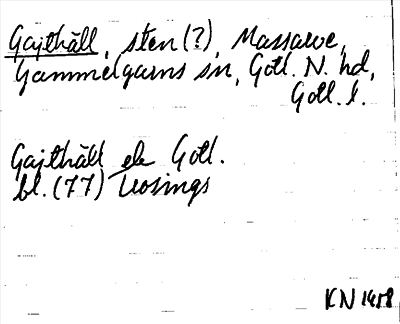 Gajthäll, sten (?), Massarve,
Gammelgarns sn, Gotl. N. hd,
Gotl. l.
Gajthäll ek Gotl.
bl. (77) Leosings
KN 1418